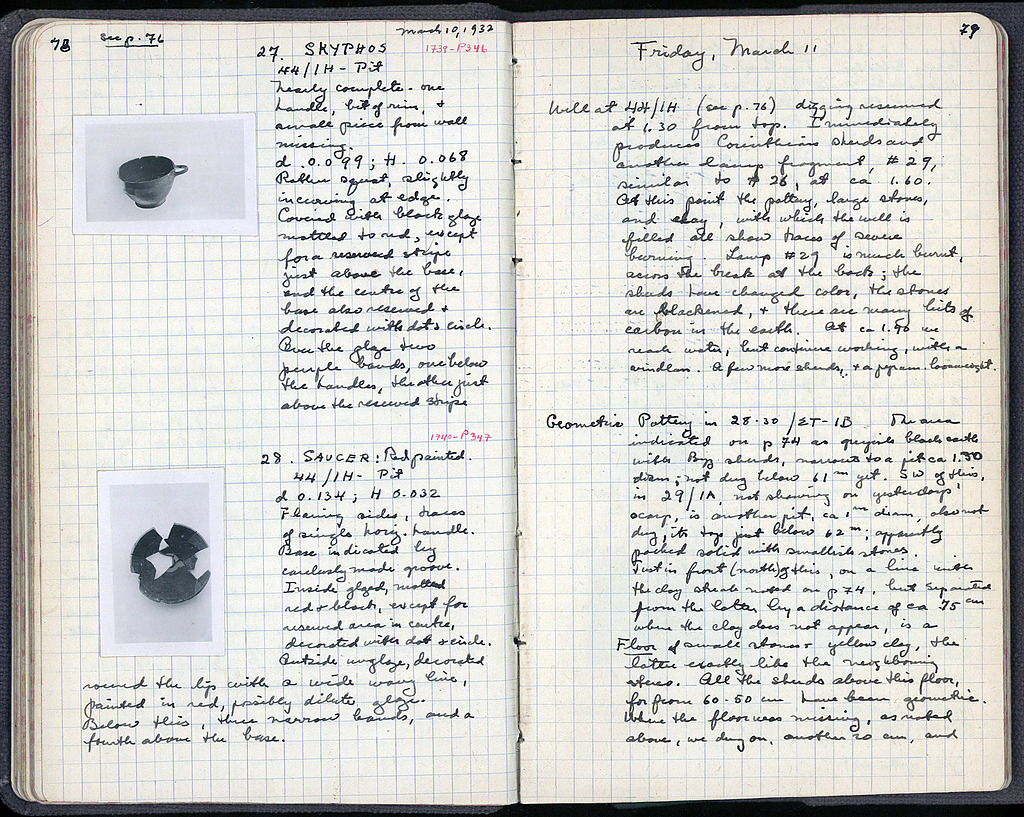 78 see p. 76 March 10, 1932
27. SKYPHOS 1739-P346
44/1H - Pit
Nearly complete - one
handle, bit of rim, &
small piece from wall
missing.
d. 0.099; H. 0.068
Rather squat, slightly
incurving at edge.
Covered with black glaze
mottled to red, except
for a reserved stripe
just above the base,
and the centre of the
base also reserved &
decorated with dot & circle.
Over the glaze two
purple bands, one below
the handles, the other just
above the reserved stripe
1740-P347
28. SAUCER: Red painted.
44/1H - Pit
d 0.134; H 0.032
Flaring sides, traces
of single horiz. handle.
Base indicated by
carelessly made groove.
Inside glazed, mottled
red & black, except for
reserved area in centre,
decorated with dot & circle.
Outside unglazed, decorated
round the lip with a wide wavy line,
painted in red, possibly dilute glaze.
Below this, three narrow bands, and a
fourth above the base.
79
Friday, March 11
Well at 44/1H (see p. 76) digging resumed
at 1.30 from top. Immediately
produces Corinthian sherds and
another lamp fragment, #29,
similar to #26, at ca 1.60.
At this point the pottery, large stones,
and clay, with which the well is
filled all show traces of severe
burning. Lamp #29 is much burnt,
across the break at the back; the
sherds have changed color, the stones
are blackened, & there are many bits of
carbon in the earth. At ca 1.90 we
reach water, but continue working, with a
windlass. A few more sherds, & a pyram. loomweight.
Geometric Pottery in 28-30/ET-1B The area
indicated on p 74 as greyish black earth
with Byz sherds, narrows to a pit ca 1.30
diam; not dug below 61 m yet. SW of this,
in 29/1A, not showing on yesterdays'
scarp, is another pit, ca 1 m diam, also not
dug, its top just below 62 m; apparently
packed solid with smallish stones.
Just in front (north) of this, on a line with
the clay streak noted on p 74, but separated
from the latter by a distance of ca 75 cm
where the clay does not appear, is a
Floor of small stones & yellow clay, the
latter exactly like the neighboring
stereo. All the sherds above this floor,
for from 60-50 cm have been geometric.
Where the floor was missing, as noted
above, we dug on, another 20 cm, and